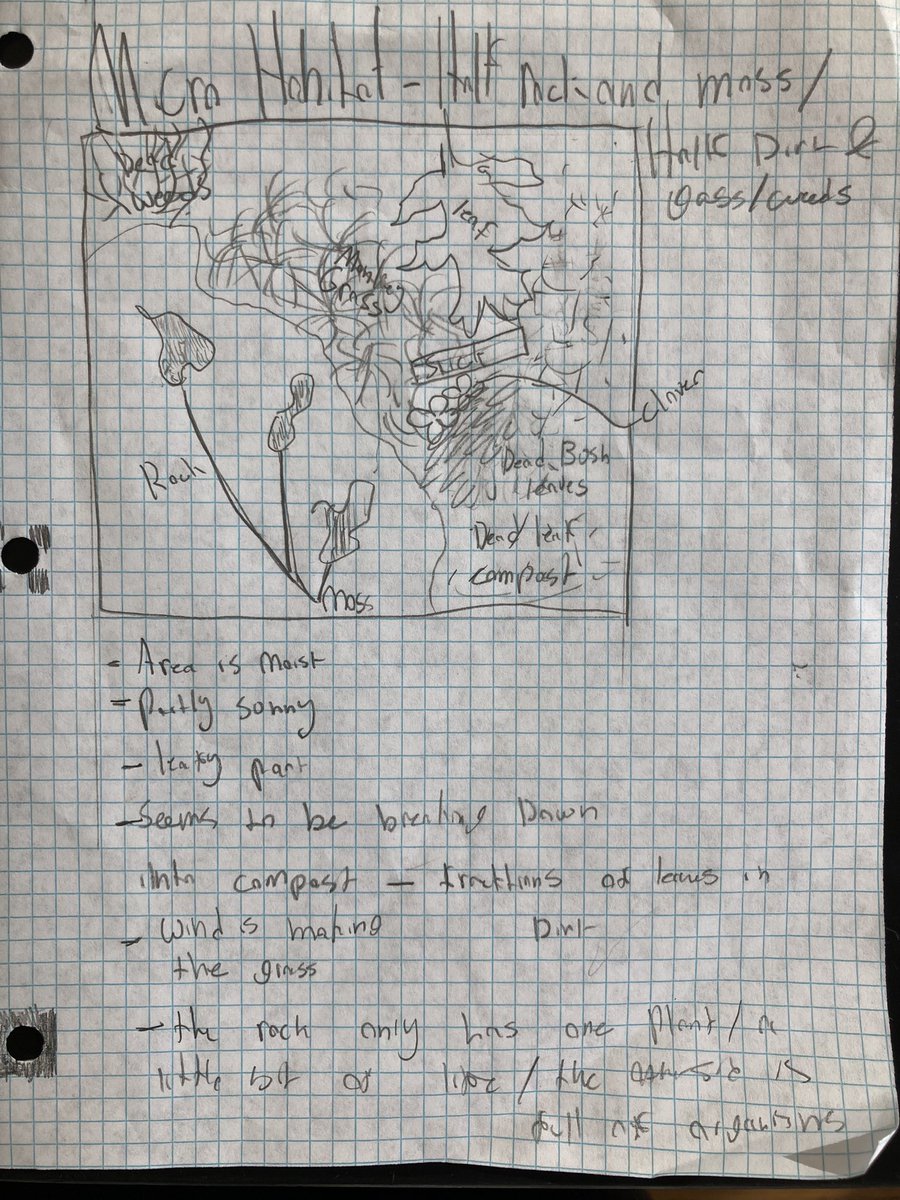 Micro Habitat - Half rock and moss/
Half Dirt &
gass/weeds
Dead
weeds
leaf
Monkey
Grass
Stick
Clover
Rock
Dead Bosh
leaves
Dead leaf
compost
Moss
- Area is Moist
- Partly sonny
- leafy part
- Seems to be breaking Down
into compost - fracttions of leaves in
Dirt
- Wind is making
the grass
- the rock only has one plant/a
little bit of life/the otherside is
full of organisms